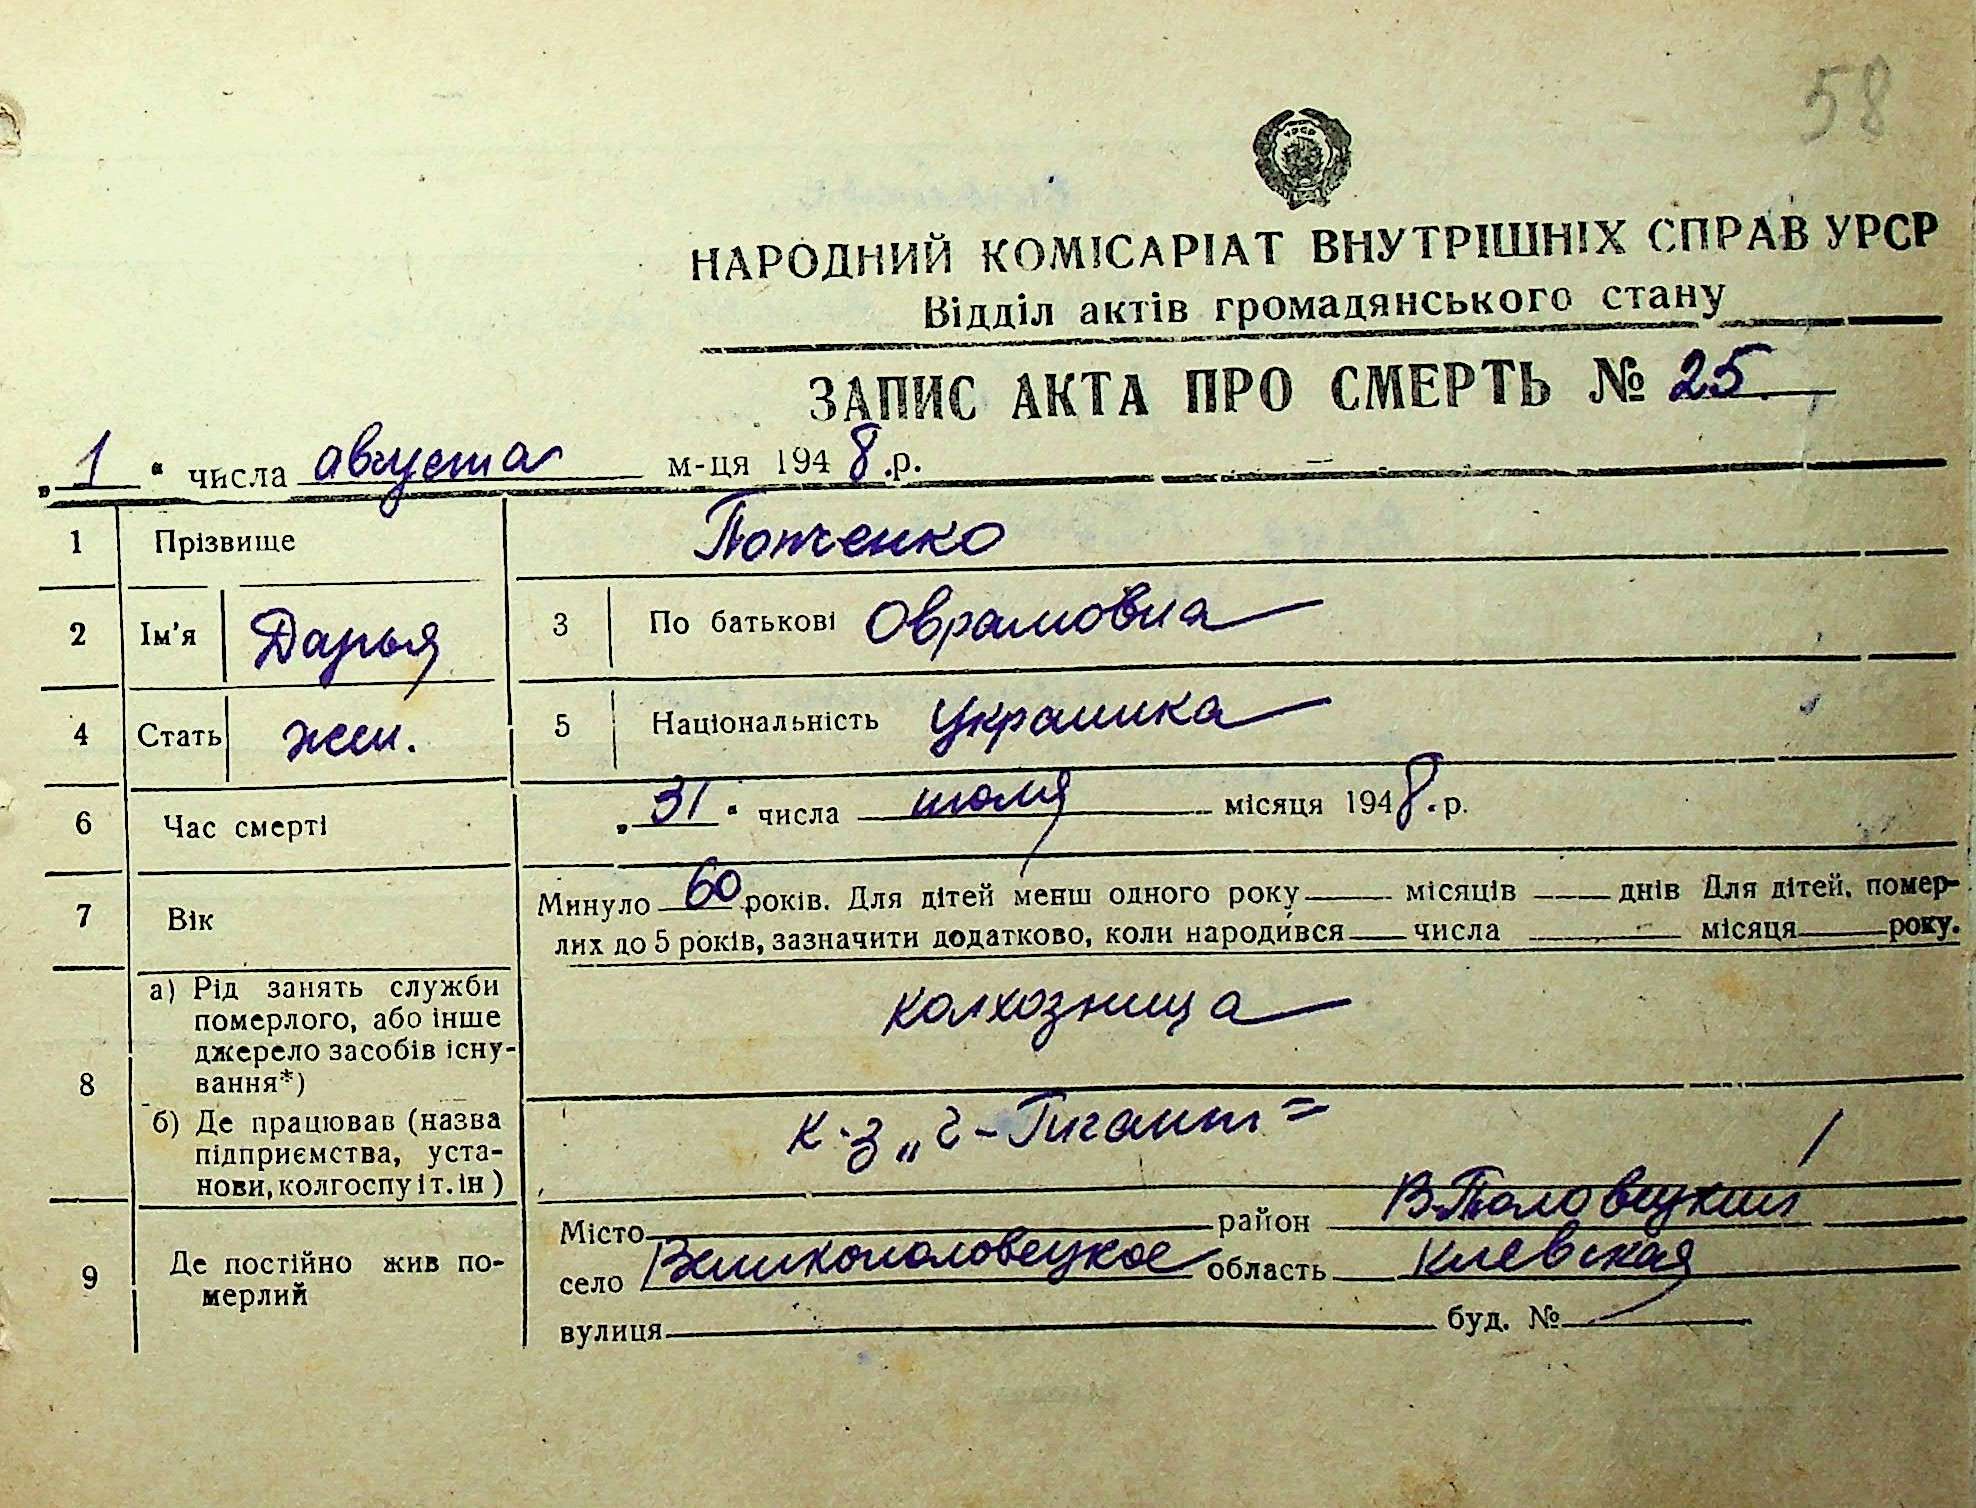 58
УРСР
НАРОДНИЙ КОМІСАРІАТ ВНУТРІШНІХ СПРАВ УРСР
Відділ актів громадянського стану
ЗАПИС АКТА ПРО СМЕРТЬ № 25.
„1“ числа августа м-ця 1948.р.
1 Прізвище Потченко
2 Ім'я Дарья 3 По батькові Оврамовна
4 Стать жен. 5 Національність украинка
6 Час смерті „31“ числа июля місяця 1948.р.
7 Вік Минуло 60 років. Для дітей менш одного року місяців днів Для дітей, помер-
лих до 5 років, зазначити додатково, коли народився числа місяця року.
8 а) Рід занять служби
померлого, або інше
джерело засобів існу-
вання*)
колхозница
б) Де працював (назва
підприємства, уста-
нови, колгоспу і т. ін )
к-з „2-Гигант=
9 Де постійно жив по-
мерлий
Місто район В-Половецкий
село Великополовецкое область Киевская
вулиця буд. №